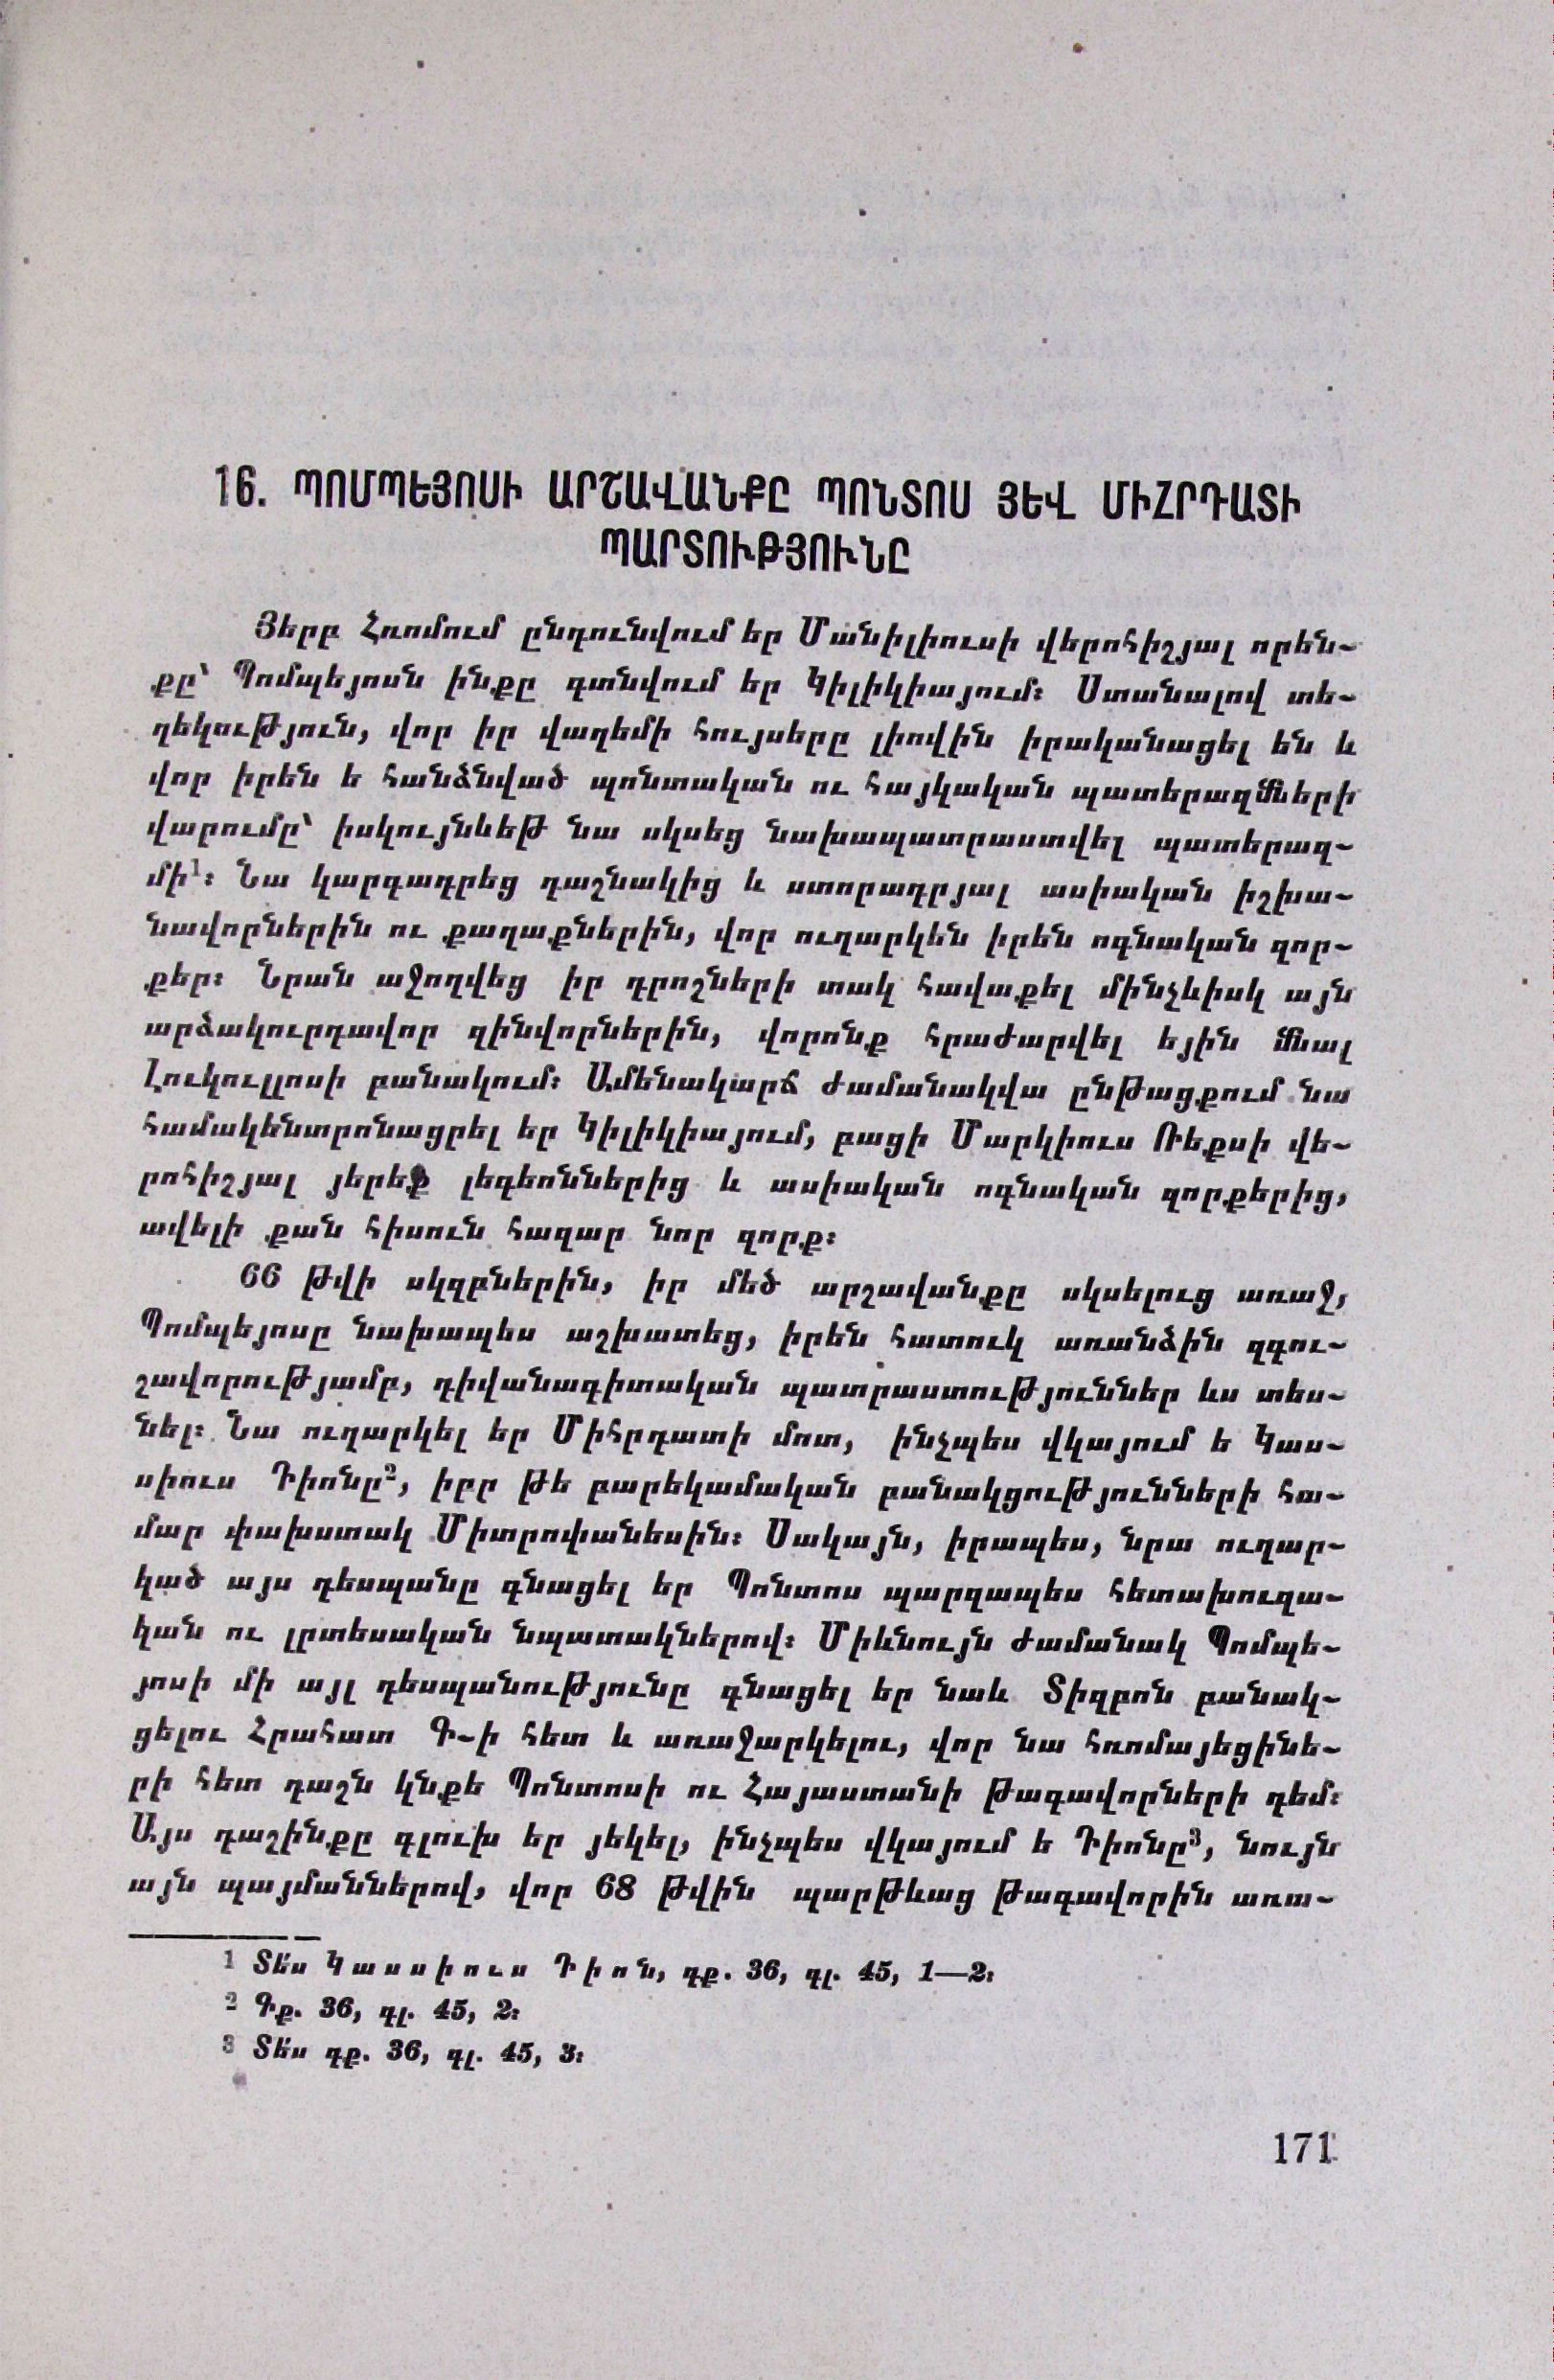 16. ՊՈՄՊԵՅՈՍԻ ԱՐՇԱՎԱՆՔԸ ՊՈՆՏՈՍ ՅԵՎ ՄԻՀՐԴԱՏԻ
ՊԱՐՏՈՒԹՅՈՒՆԸ
Յերբ Հռոմում ընդունվում եր Մանիլիուսի վերոհիշյալ որեն-
քը՝ Պոմպեյոսն ինքը գտնվում եր Կիլիկիայում։ Ստանալով տե-
ղեկություն, վոր իր վաղեմի հույսերը լիովին իրականացել են և
վոր իրեն ե հանձնված պոնտական ու հայկական պատերազմների
վարումը՝ իսկույնևեթ նա սկսեց նախապատրաստվել պատերազ-
մի¹։ Նա կարգադրեց դաշնակից և ստորադրյալ ասիական իշխա-
նավորներին ու քաղաքներին, վոր ուղարկեն իրեն ոգնական զոր-
քեր։ Նրան աջողվեց իր դրոշների տակ հավաքել մինչևիսկ այն
արձակուրդավոր զինվորներին, վորոնք հրաժարվել եյին մնալ
Լուկուլլոսի բանակում։ Ամենակարճ ժամանակվա ընթացքում նա
համակենտրոնացրել եր Կիլիկիայում, բացի Մարկիուս Ռեքսի վե-
րոհիշյալ յերեք լեգեոններից և ասիական ոգնական զորքերից,
ավելի քան հիսուն հազար նոր զորք։
66 թվի սկզբներին, իր մեծ արշավանքը սկսելուց առաջ,
Պոմպեյոսը նախապես աշխատեց, իրեն հատուկ առանձին զգու-
շավորությամբ, դիվանագիտական պատրաստություններ ևս տես-
նել։ Նա ուղարկել եր Միհրդատի մոտ, ինչպես վկայում ե Կաս-
սիուս Դիոնը², իբր թե բարեկամական բանակցությունների հա-
մար փախստակ Միտրոփանեսին։ Սակայն, իրապես, նրա ուղար-
կած այս դեսպանը գնացել եր Պոնտոս պարզապես հետախուզա-
կան ու լրտեսական նպատակներով։ Միևնույն ժամանակ Պոմպե-
յոսի մի այլ դեսպանությունը գնացել եր նաև Տիզբոն բանակ-
ցելու Հրահատ Գ-ի հետ և առաջարկելու, վոր նա հռոմայեցինե-
րի հետ դաշն կնքե Պոնտոսի ու Հայաստանի թագավորների դեմ։
Այս դաշինքը գլուխ եր յեկել, ինչպես վկայում ե Դիոնը³, նույն
այն պայմաններով, վոր 68 թվին պարթևաց թագավորին առա-
1 Տե՛ս Կասսիուս Դիոն, գք. 36, գլ. 45, 1—2։
2 Գք. 36, գլ. 45, 2։
3 Տե՛ս գք. 36, գլ. 45, 3։
171